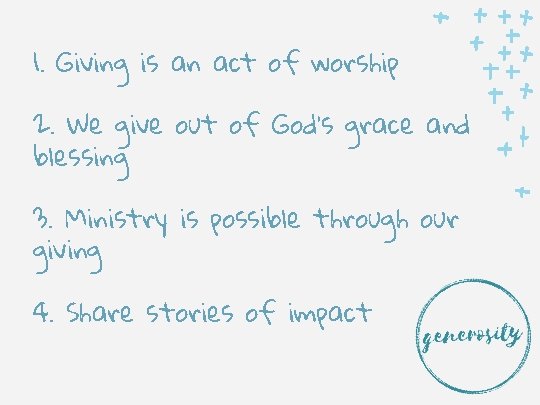 1. Giving is an act of worship
2. We give out of God's grace and
blessing
3. Ministry is possible through our
giving
4. Share stories of impact
generosity